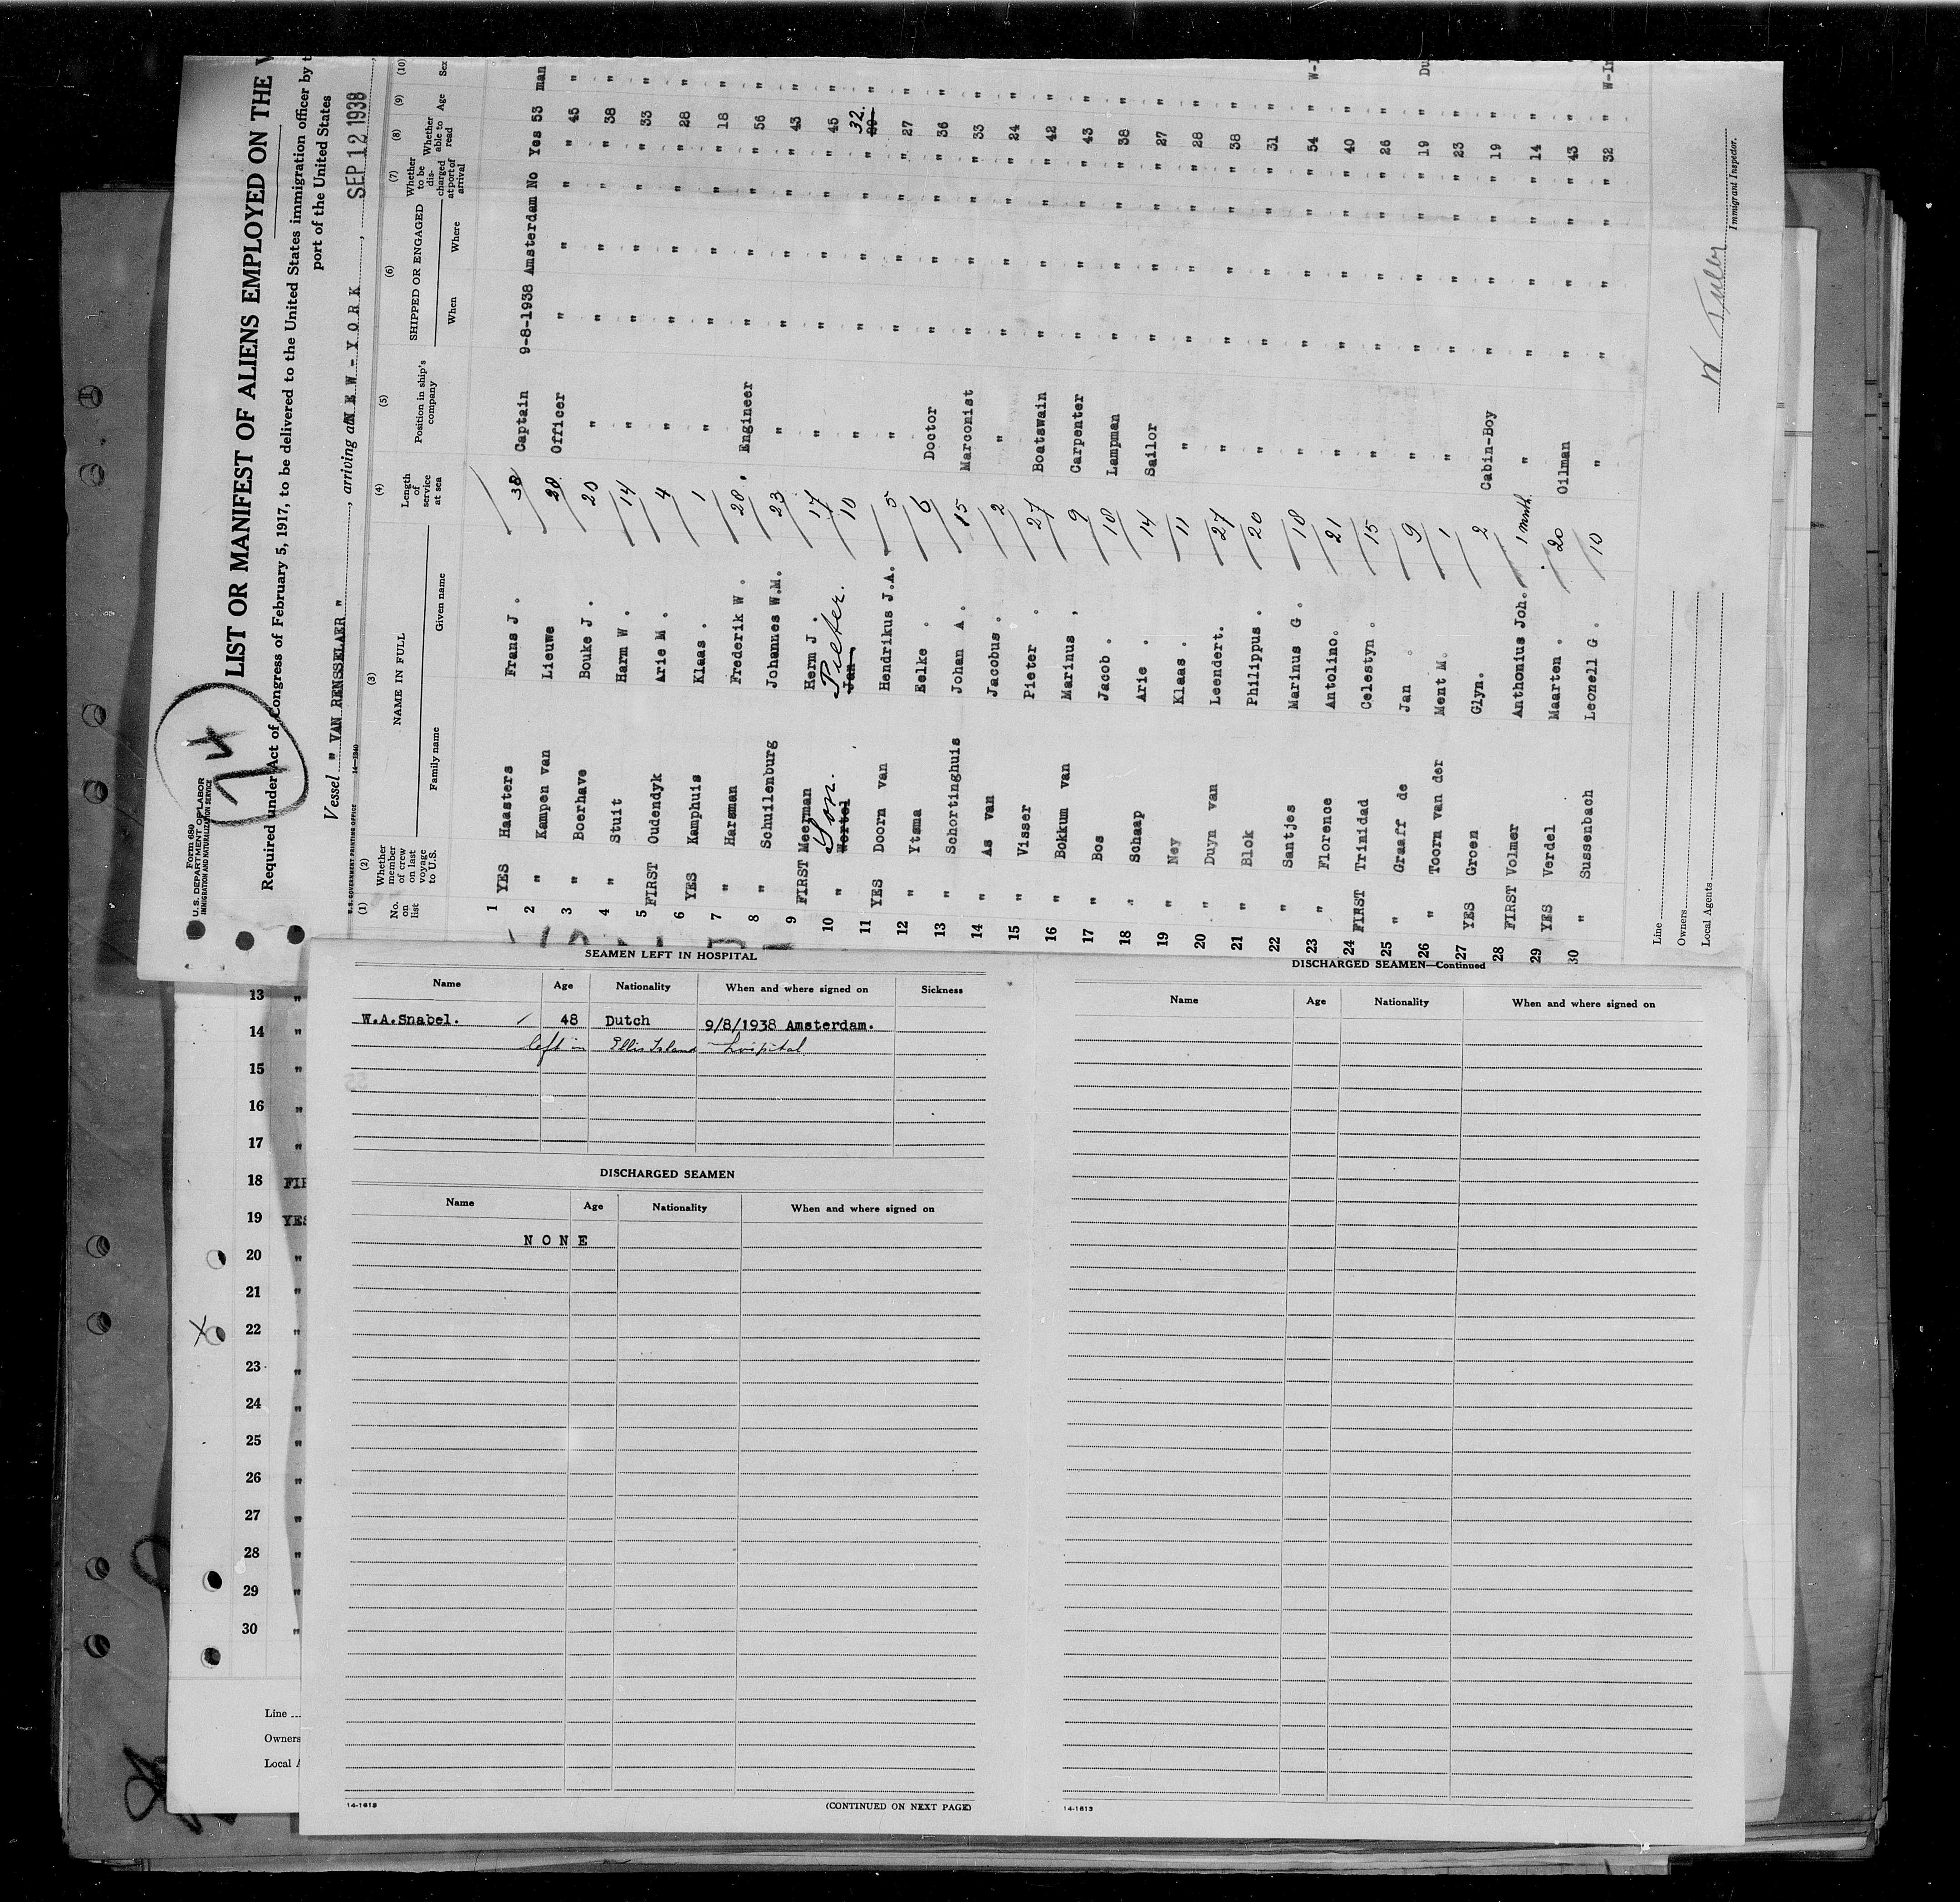 Form 689
U. S. DEPARTMENT OF LABOR
IMMIGRATION AND NATURALIZATION SERVICE
74
LIST OR MANIFEST OF ALIENS EMPLOYED ON THE
Required under Act of Congress of February 5, 1917, to be delivered to the United States immigration officer by
port of the United States
Vessel " VAN RENSSELAER ", arriving at NEW-YORK, SEP 12 1938
U.S. GOVERNMENT PRINTING OFFICE 14-1240
(1) (2) (3) (4) (5) (6) (7) (8) (9) (10)
No. on list Whether member of crew on last voyage to U.S. NAME IN FULL Family name Given name Length of service at sea Position in ship's company SHIPPED OR ENGAGED When Where Whether to be discharged at port of arrival Whether able to read Age Sex
1 YES Haasters Frans J . 38 Captain 9-8-1938 Amsterdam No Yes 53 man
2 " Kampen van Lieuwe 28 Officer " " " " 45 "
3 " Boerhave Bouke J . 20 " " " " " 38 "
4 " Stuit Harm W . 14 " " " " " 33 "
5 FIRST Oudendyk Arie M . 4 " " " " " 28 "
6 YES Kamphuis Klaas . 1 " " " " " 18 "
7 " Harsman Frederik W . 28 Engineer " " " " 56 "
8 " Schuilenburg Johannes W.M. 23 " " " " " 43 "
9 FIRST Meerman Herm J . 17 " " " " " 45 "
10 " Wortel Son. Jan Pieter. 10 " " " " " 29 32. "
11 YES Doorn van Hendrikus J.A. 5 " " " " " 27 "
12 " Ytsma Eelke . 6 Doctor " " " " 36 "
13 " Schortinghuis Johan A . 15 Marconist " " " " 33 "
14 " As van Jacobus . 2 " " " " " 24 "
15 " Visser Pieter . 27 Boatswain " " " " 42 "
16 " Bokkum van Marinus , 9 Carpenter " " " " 43 "
17 " Bos Jacob . 18 Lampman " " " " 38 "
18 " Schaap Arie . 14 Sailor " " " " 27 "
19 " Ney Klaas . 11 " " " " " 28 "
20 " Duyn van Leendert. 27 " " " " " 38 "
21 " Blok Philippus . 20 " " " " " 31 "
22 " Santjes Marinus G . 18 " " " " " 54 "
23 " Florence Antolino. 21 " " " " " 40 "
24 FIRST Trinidad Celestyn . 15 " " " " " 26 "
25 " Graaff de Jan . 9 " " " " " 19 "
26 " Toorn van der Ment M. 1 " " " " " 23 "
27 YES Groen Glyn. 2 Cabin-Boy " " " " 19 "
28 FIRST Volmer Anthonius Joh. 1 month " " " " " 14 "
29 YES Verdel Maarten . 20 Oilman " " " " 43 "
30 " Sussenbach Leonell G . 10 " " " " " 32 "
Line
Owners
Local Agents
Immigrant Inspector.
SEAMEN LEFT IN HOSPITAL
Name Age Nationality When and where signed on Sickness
W.A.Snabel. 48 Dutch 9/8/1938 Amsterdam.
left in Ellis Island hospital
DISCHARGED SEAMEN
Name Age Nationality When and where signed on
NONE
14-1613
(CONTINUED ON NEXT PAGE)
DISCHARGED SEAMEN—Continued
Name Age Nationality When and where signed on
14-1613
13 "
14 "
15 "
16 "
17 "
18 FIR
19 YES
20 "
21 "
22 "
23 "
24 "
25 "
26 "
27 "
28 "
29 "
30 "
Line
Owners
Local A